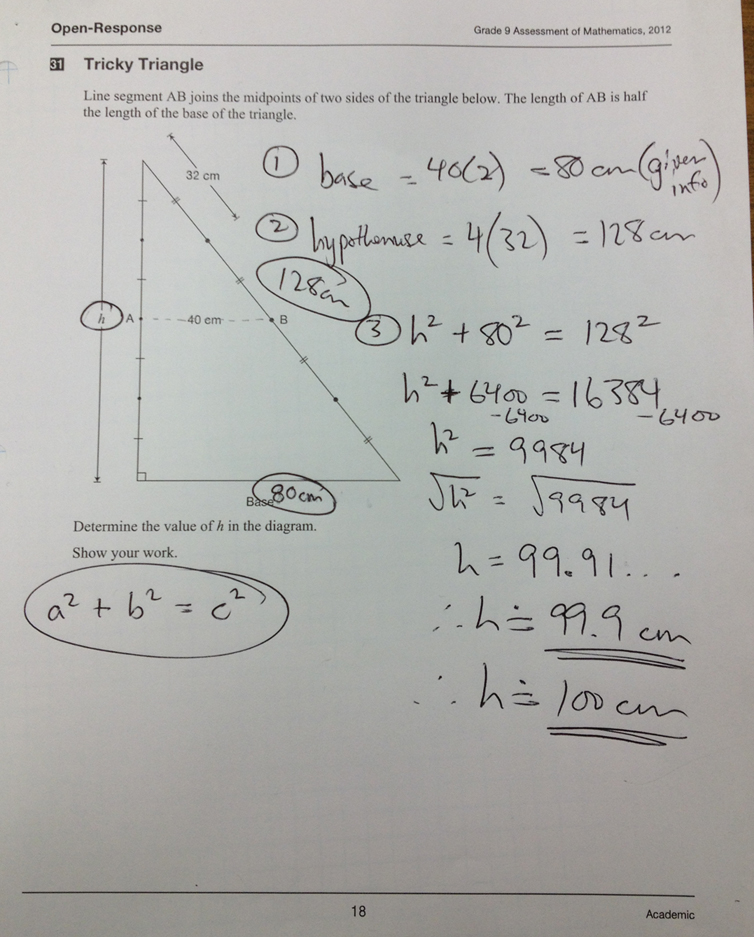 Open-Response
Grade 9 Assessment of Mathematics, 2012
31 Tricky Triangle
Line segment AB joins the midpoints of two sides of the triangle below. The length of AB is half
the length of the base of the triangle.
32 cm
① base = 40(2) = 80 cm (given info)
② hypothenuse = 4(32) = 128 cm
128cm
h
A
40 cm
B
③ h² + 80² = 128²
h² + 6400 = 16384
-6400 -6400
h² = 9984
√h² = √9984
Base 80cm
Determine the value of h in the diagram.
Show your work.
h = 99.91...
a² + b² = c²
∴ h ≐ 99.9 cm
∴ h ≐ 100 cm
18
Academic